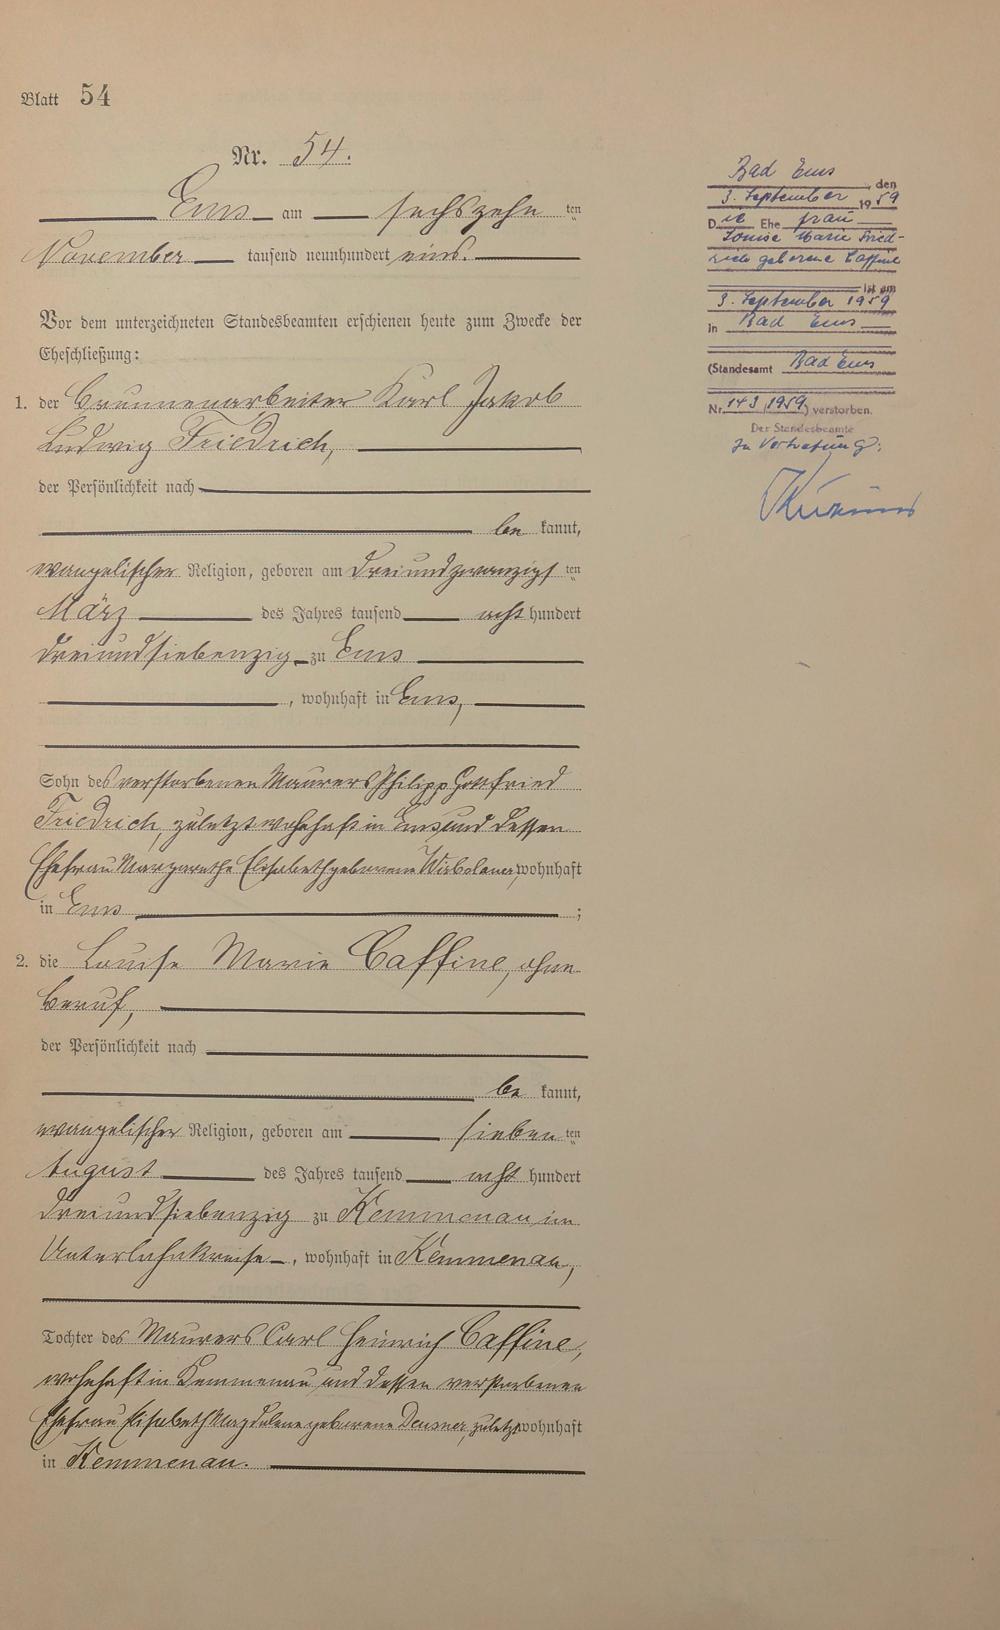 Blatt 54
Nr. 54.
Ems am sechszehn ten
November tausend neunhundert eins.
Vor dem unterzeichneten Standesbeamten erschienen heute zum Zwecke der
Eheschließung:
1. der Brunnenarbeiter Karl Jakob
Ludwig Friedrich,
der Persönlichkeit nach
be kannt,
evangelischer Religion, geboren am dreiundzwanzigs ten
März des Jahres tausend acht hundert
dreiundsiebenzig zu Ems
, wohnhaft in Ems,
Sohn des verstorbenen Maurers Philipp Gottfried
Friedrich, zuletzt wohnhaft in Ems und dessen
Ehefrau Margarethe Elisabeth geborene wohnhaft
in Ems ;
2. die Louise Marie Caffine, ohne
Beruf,
der Persönlichkeit nach
be kannt,
evangelischer Religion, geboren am sieben ten
August des Jahres tausend acht hundert
dreiundsiebenzig zu Kemmenau im
Unterlahnkreise , wohnhaft in Kemmenau,
Tochter des Maurers Carl Heinrich Caffine,
wohnhaft in Kemmenau und dessen verstorbenen
Ehefrau Elisabeth Magdalene geborene zuletzt wohnhaft
in Kemmenau.
Bad Ems
, den
3. September 1959
Die Ehefrau
Louise Marie Fried-
rich geborene Caffine
ist am
3. September 1959
in Bad Ems
(Standesamt Bad Ems
Nr. 143/1959) verstorben.
Der Standesbeamte
In Vertretung: